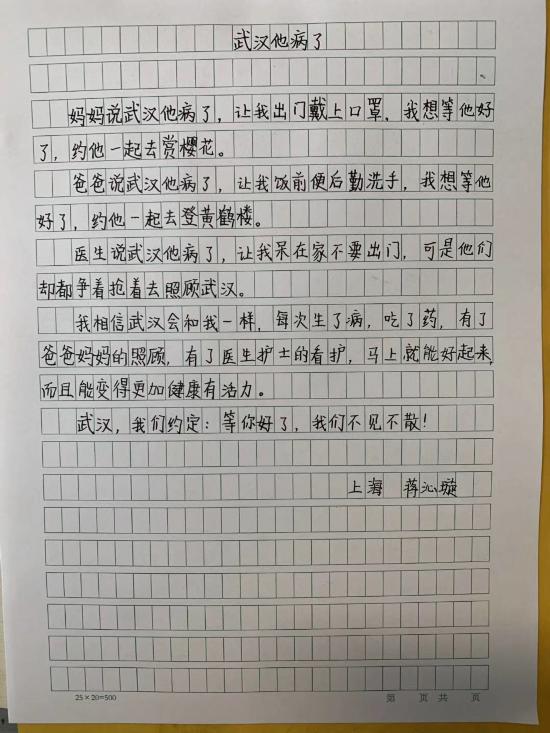 武汉他病了
妈妈说武汉他病了，让我出门戴上口罩，我想等他好
了，约他一起去赏樱花。
爸爸说武汉他病了，让我饭前便后勤洗手，我想等他
好了，约他一起去登黄鹤楼。
医生说武汉他病了，让我呆在家不要出门，可是他们
却都争着抢着去照顾武汉。
我相信武汉会和我一样，每次生了病，吃了药，有了
爸爸妈妈的照顾，有了医生护士的看护，马上就能好起来，
而且能变得更加健康有活力。
武汉，我们约定：等你好了，我们不见不散！
上海 蒋沁璇
25×20=500 第 页 共 页